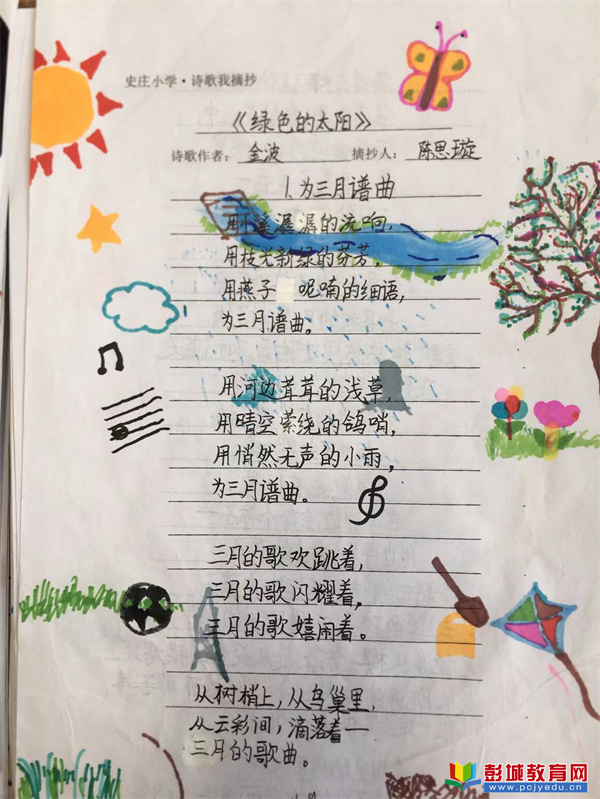 史庄小学·诗歌我摘抄
《绿色的太阳》
诗歌作者: 金波 摘抄人: 陈思璇
1.为三月谱曲
用小溪潺潺的流响,
用枝头新绿的芬芳,
用燕子 呢喃的细语,
为三月谱曲。
用河边茸茸的浅草,
用晴空萦绕的鸽哨,
用悄然无声的小雨,
为三月谱曲。
三月的歌欢跳着,
三月的歌闪耀着,
三月的歌嬉闹着。
从树梢上,从鸟巢里,
从云彩间,滴落着—
三月的歌曲。
彭城教育网
www.pcjyedu.cn